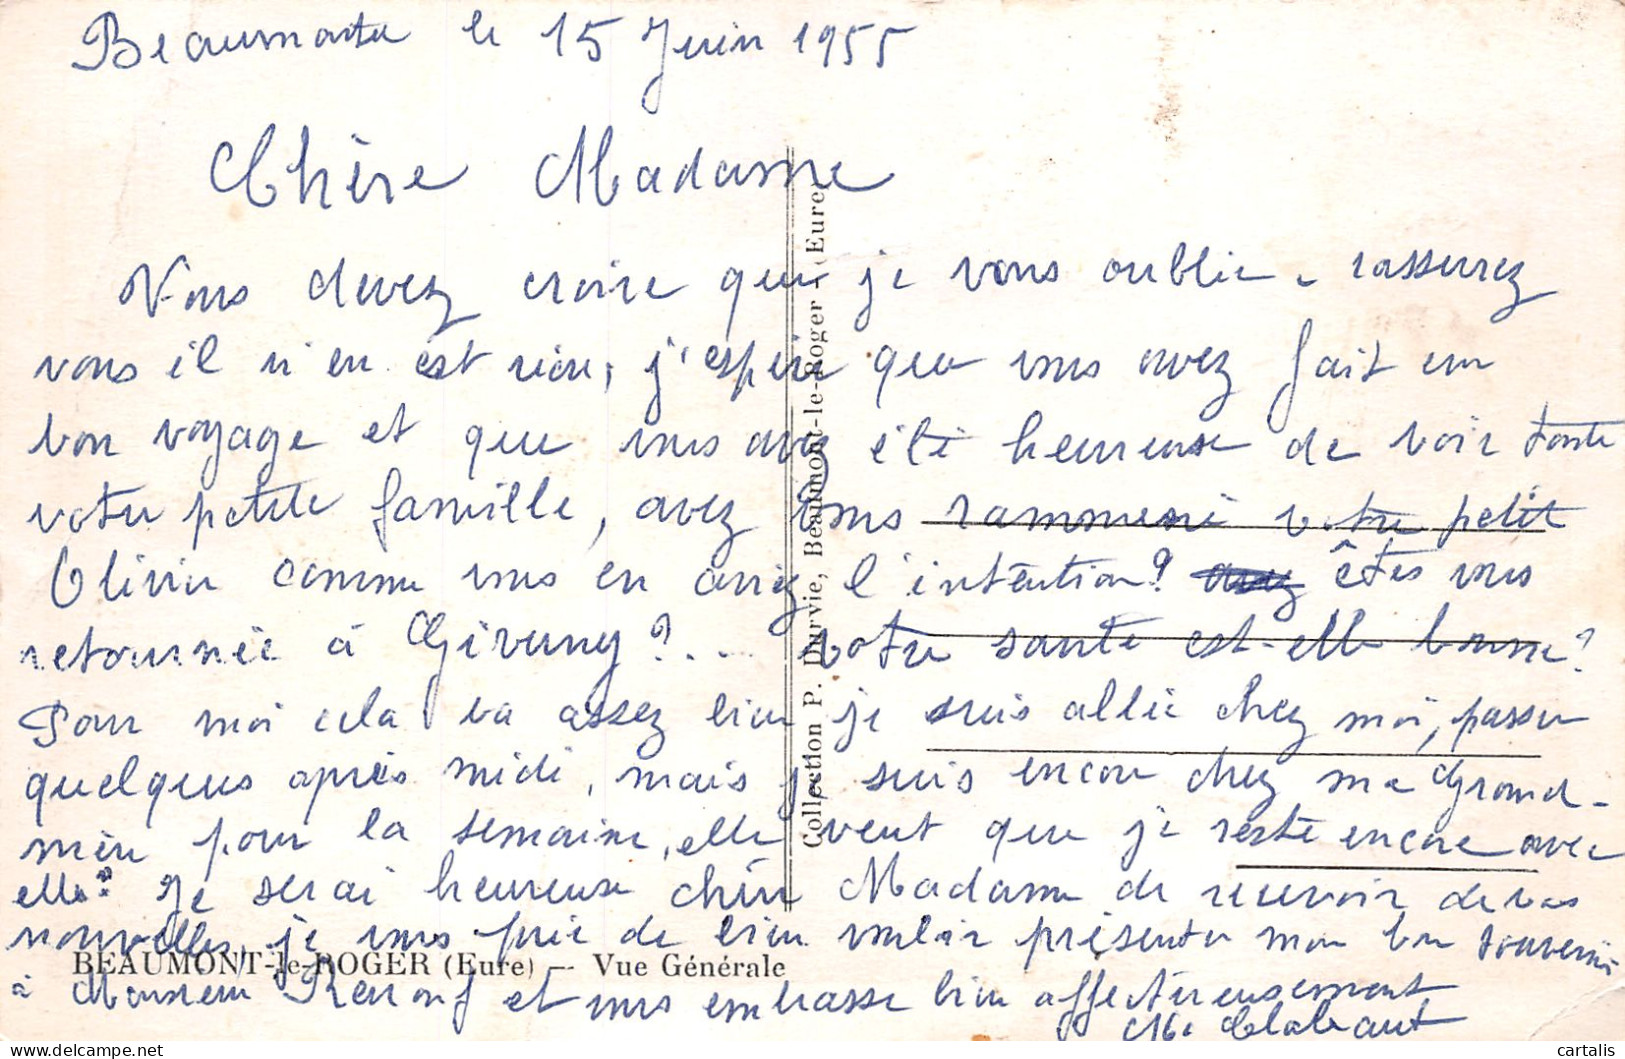 Beaumonte le 15 Juin 1955
Chère Madame
Vous devez croire que je vous oublie, rassurez
vous il n'en est rien, j'espère que vous avez fait un
bon voyage et que vous avez été heureuse de voir toute
votre petite famille, avez vous rammené votre petit
Olivier comme vous en aviez l'intention? êtes vous
retournée à Giverny?... votre santé est-elle bonne?
Pour moi cela va assez bien je suis allée chez moi, passer
quelques après midi, mais je suis encore chez ma Grand-
mère pour la semaine, elle veut que je reste encore avec
elle? Je serai heureuse chère Madame de recevoir de vos
nouvelles, je vous prie de bien vouloir présenter mon bon souvenir
à Monsieur et vous embrasse bien affectueusement
BEAUMONT-le-ROGER (Eure) — Vue Générale
Collection P. Durvie, Beaumont-le-Roger (Eure)
cartalis
delcampe.net